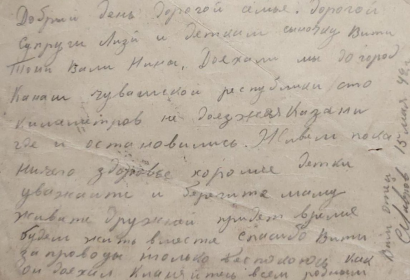 Добрый день дорогой семье. дорогой
супруги Лизи и деткам сыночку Вити
Тони Вали Нина. Доехали мы до город
Канаш чувашской республики сто
километров не доезжая Казани
где и остановились. Живем пока
ничего здоровье хорошее детки
уважайте и берегите маму
живите дружной придет время
будем жить вместе спасибо Вити
за проводы только беспокоюсь как
он доехал Кланяйтесь всем родным
Ваш отец
15 мая 42 г